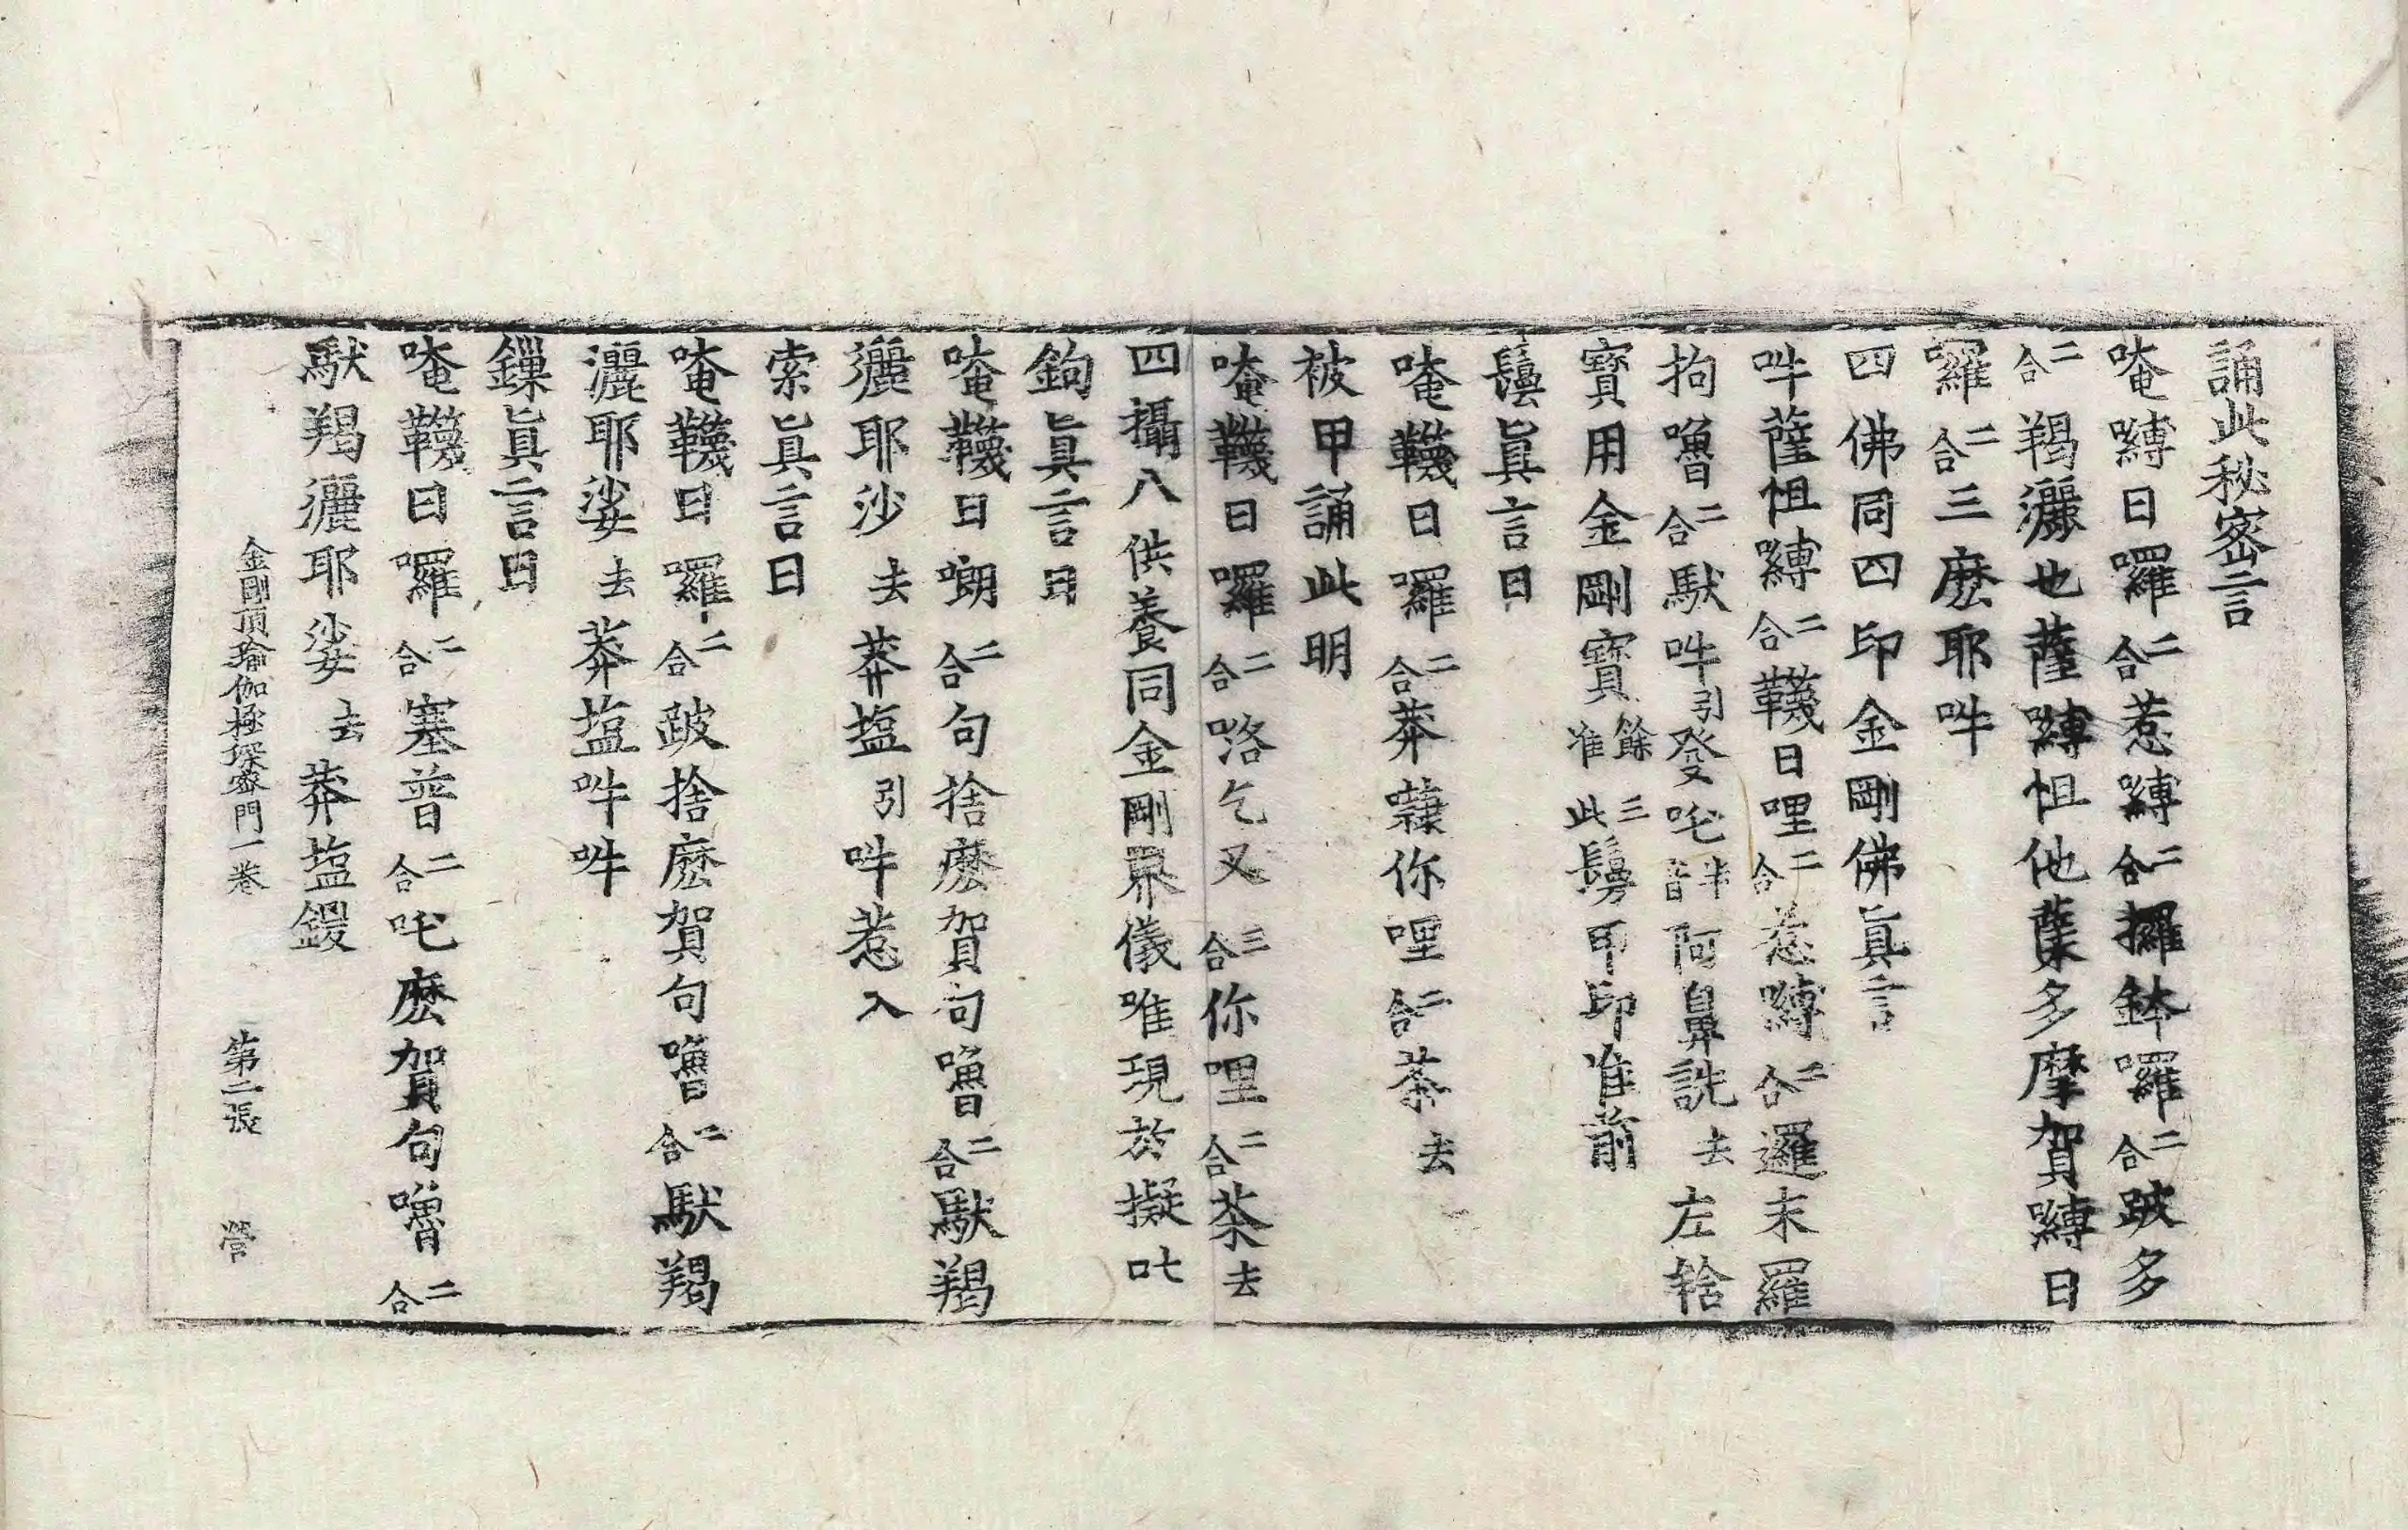 誦此秘密言
唵嚩日囉二合惹嚩二合攞鉢囉二合跛多
二合羯灑也薩嚩怛他蘖多摩賀嚩日
囉二合三麽耶吽
四佛同四印金剛佛眞言
吽薩怛嚩二合韈日哩二合惹嚩二合邏末羅
拘嚕二合馱吽引發吒半音阿鼻詵去左
寶用金剛寶餘三准此鬘甲印准前
鬘眞言曰
唵韈日囉二合莽隸你哩二合荼去
被甲誦此明
唵韈日囉二合咯乞叉三合你哩二合荼去
四攝八供養同金剛界儀唯現於擬吒
鉤眞言曰
唵韈日嘲二合句捨麽賀句嚕二合馱羯
灑耶沙去莽塩引吽惹入
索眞言曰
唵韈日囉二合跛捨麽賀句嚕二合馱羯
灑耶娑去莽塩吽吽
鏁眞言曰
唵韈日囉二合塞普二合吒麽賀句嚕二合
馱羯灑耶娑去莽塩鍐
金剛頂瑜伽極深密門一卷 第二張 營